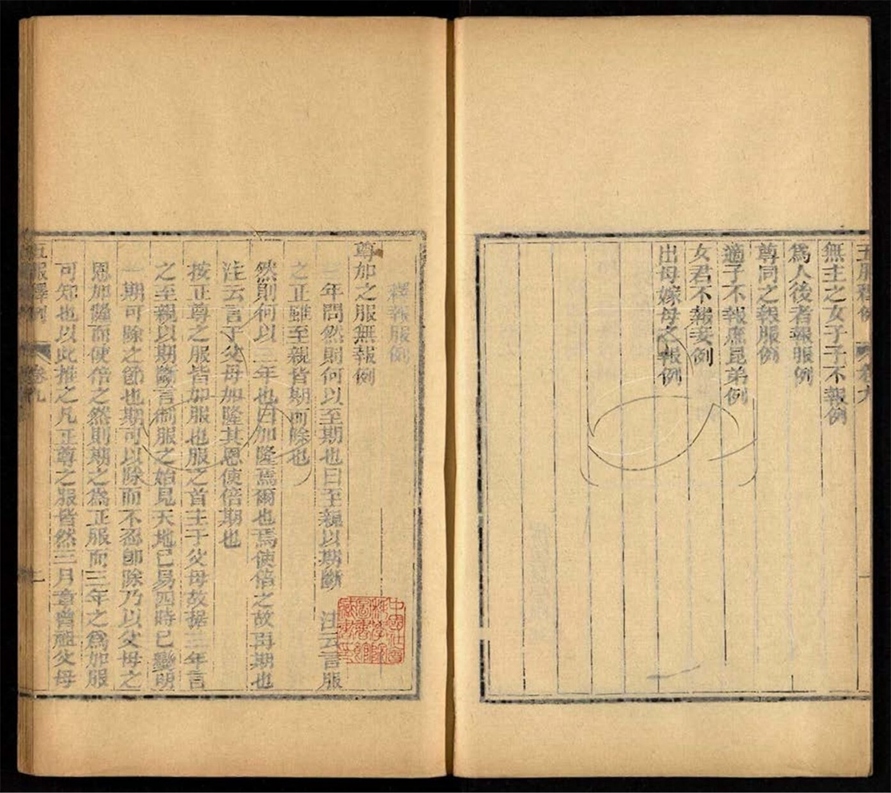 五服釋例 卷九
無主之女子子不報例
爲人後者報服例
尊同之報服例
適子不報庶昆弟例
女君不報妾例
出母嫁母之報例
釋報服例
尊加之服無報例
三年問然則何以至期也曰至親以期斷 注云言服
之正雖至親皆期而除也
然則何以三年也曰加隆焉爾也焉使倍之故再期也
注云言于父母加隆其恩使倍期也
按正尊之服皆加服也服之首主于父母故據三年言
之至親以期斷言制服之始見天地已易四時已變明
一期可除之節也期可以除而不忍卽除乃以父母之
恩加隆而使倍之然則期之爲正服而三年之爲加服
可知也以此推之凡正尊之服皆然三月章曾祖父母
五服釋例 卷九 二